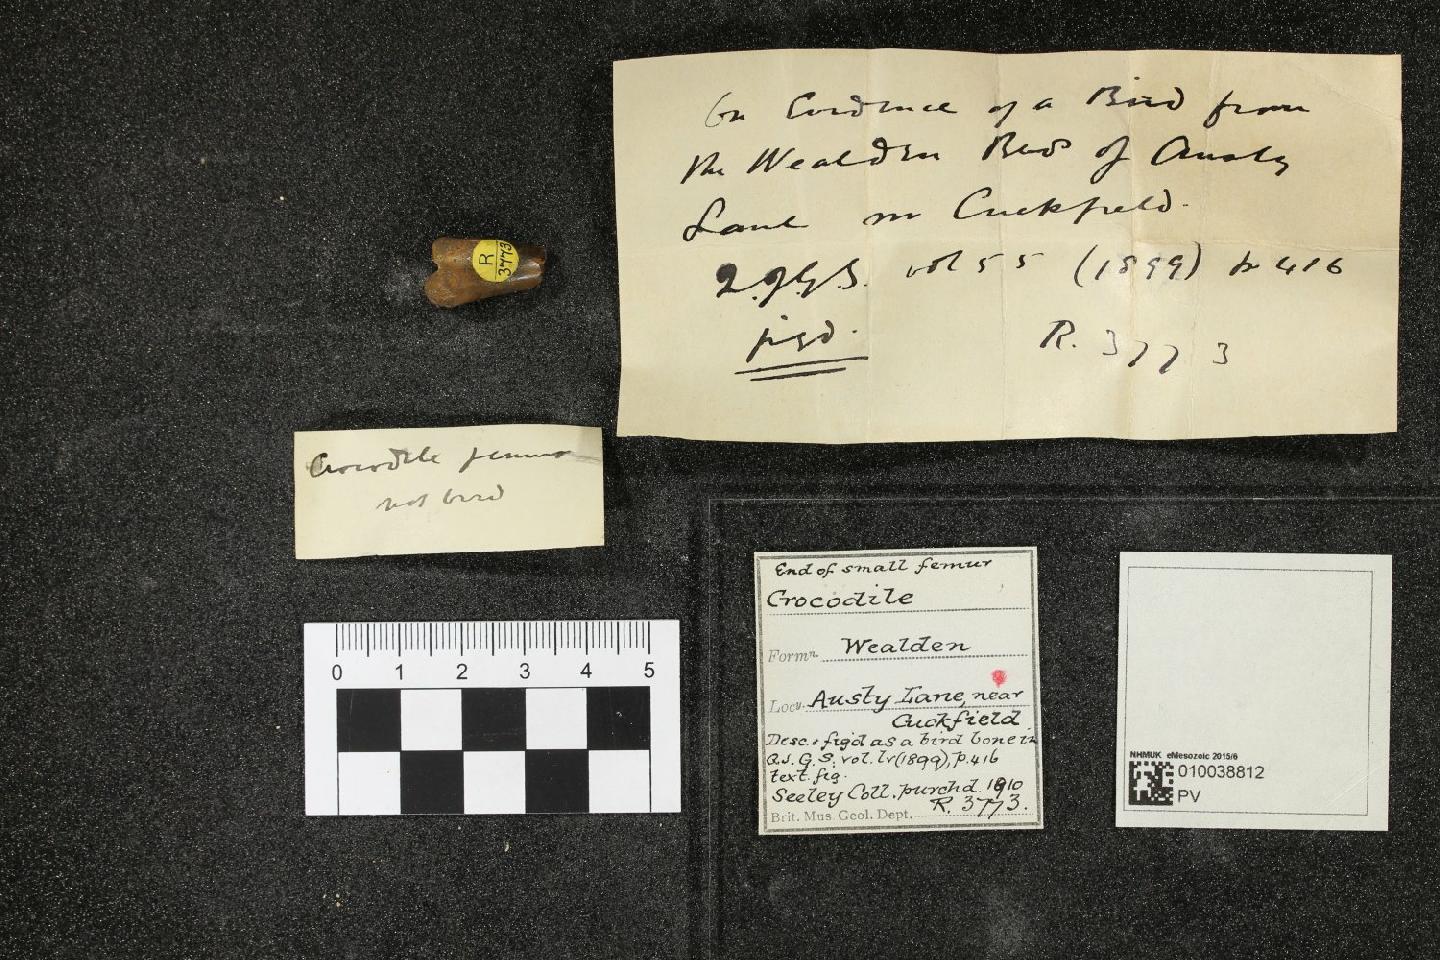 On Evidence of a Bird from
the Wealden Beds of Ansty
Lane nr Cuckfield.
Q.J.G.S. vol 55 (1899) p 416
figd.
R. 3773
R
3773
Crocodile femur
not bird
0 1 2 3 4 5
End of small femur
Crocodile
Formn. Wealden
Locy. Austy Lane, near
Cuckfield
Desc. & fig'd as a bird bone in
Q.J.G.S. vol. lv (1899), p. 416
text. fig.
Seeley Coll. purchd. 1910
R. 3773.
Brit. Mus. Geol. Dept.
NHMUK eMesozoic 2015/6
010038812
PV